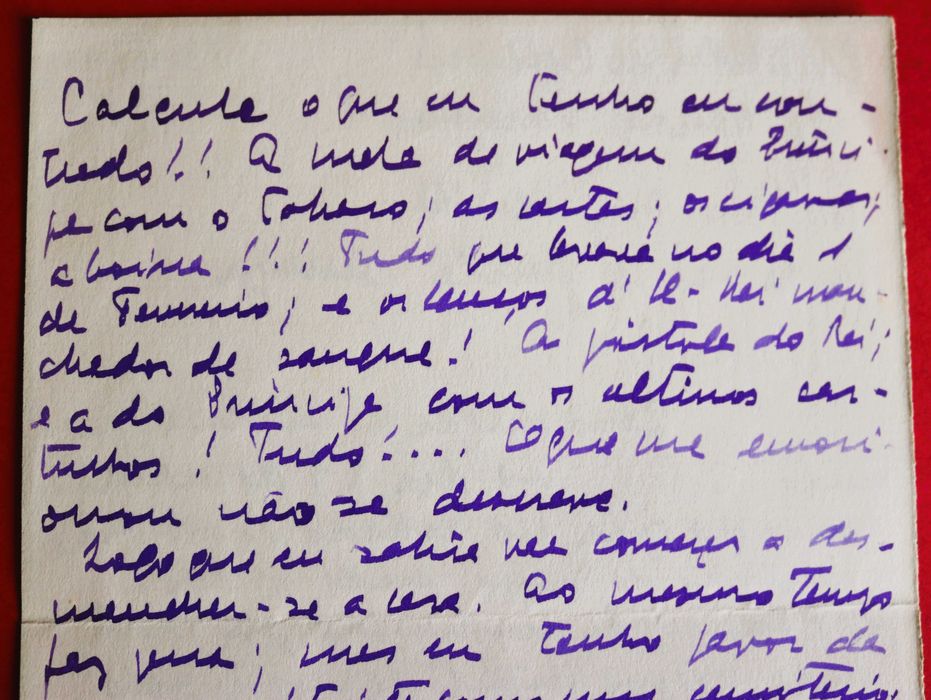 Calcule o que eu tenho encon-
trado!! A mala de viagem do Princi-
pe com o Tabaco; as cartas; os cigarros;
a boina!!! Tudo que levava no dia 1
de Fevereiro; e os lenços d'El-Rei man-
chados de sangue! A pistola do Rei;
e a do Principe com os ultimos car-
tuchos! Tudo!.... O que me emoci-
onou não se descreve.
Logo que eu sahir vae começar a des-
manchar-se a casa. Ao mesmo Tempo
faz pena; mas eu tenho pavor da